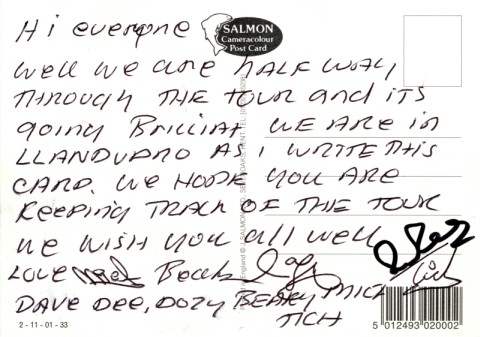 Hi everyone
SALMON
Cameracolour
Post Card
Well we are HALF WAY
THROUGH THE TOUR and ITS
going BRILLIAT WE ARE in
LLANDUDNO AS I WRITE THIS
CARD. WE HOPE YOU ARE
KEEPING TRACK OF THE TOUR
WE WISH YOU all well
LOVE Beaky
DAVE DEE, DOZY BEAKY MICK
TICH
2 - 11 - 01 - 33
5 012493 020002